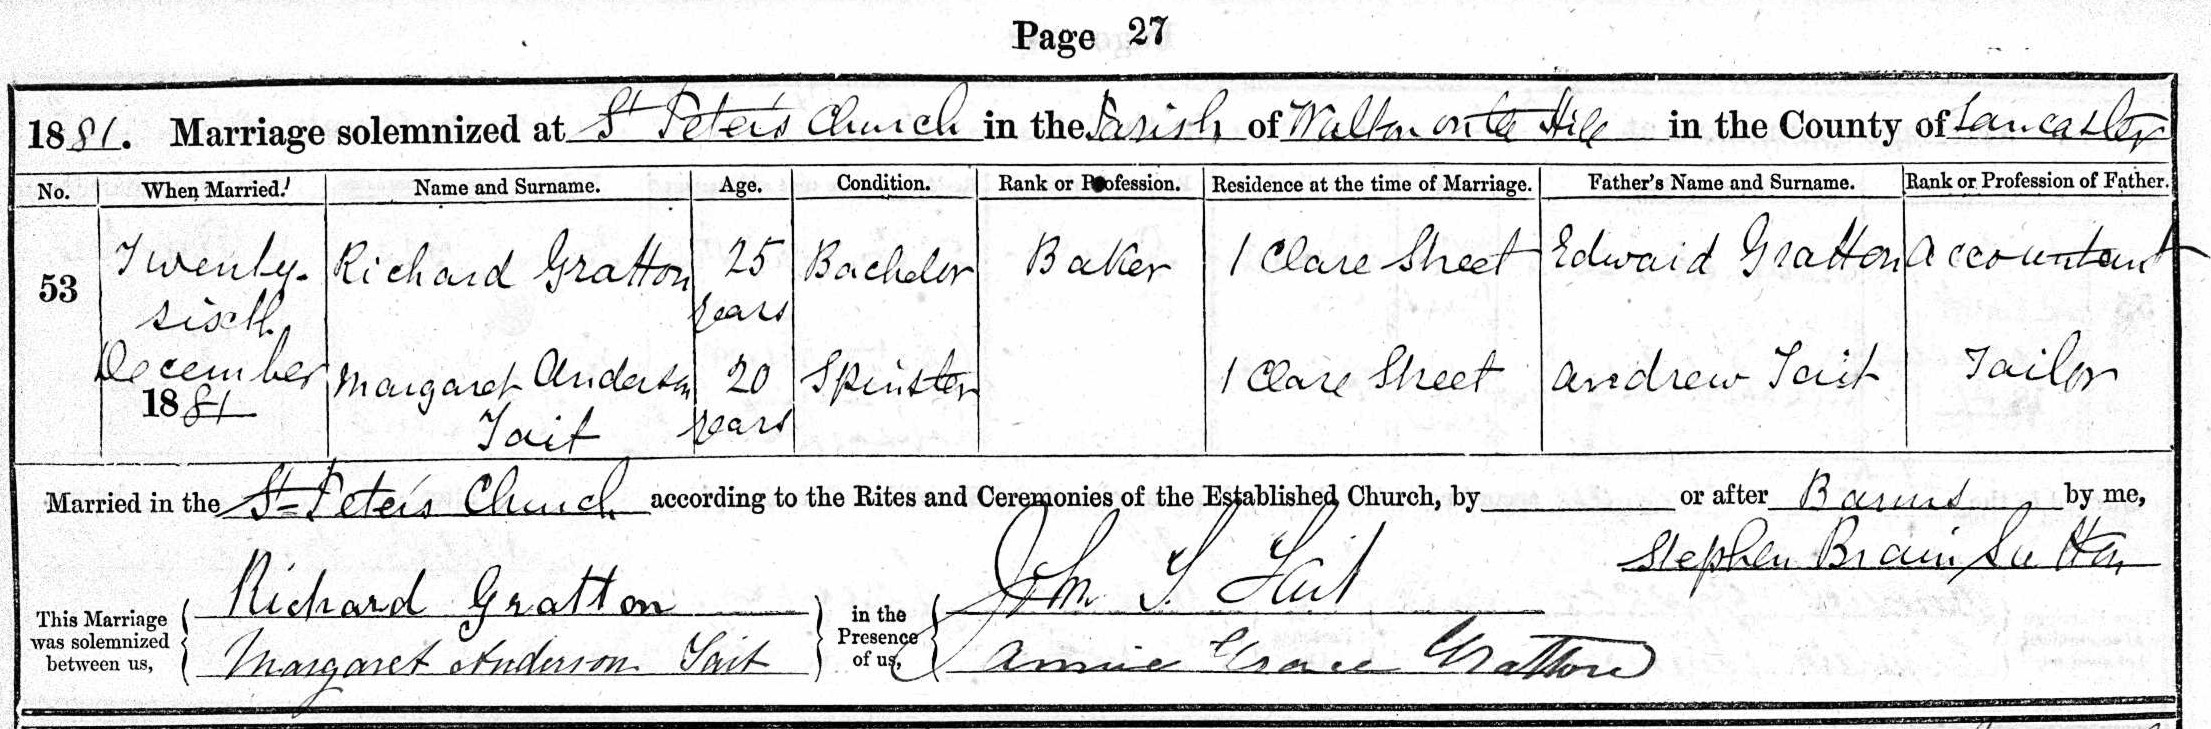 Page 27
1881. Marriage solemnized at St Peter's Church in the Parish of Walton on the Hill in the County of Lancaster
No. When Married. Name and Surname. Age. Condition. Rank or Profession. Residence at the time of Marriage. Father's Name and Surname. Rank or Profession of Father.
53 Twenty- Richard Gratton 25 Bachelor Baker 1 Clare Street Edward Gratton Accountant
sixth years
December Margaret Anderson 20 Spinster 1 Clare Street Andrew Tait Tailor
1881 Tait years
Married in the St Peter's Church according to the Rites and Ceremonies of the Established Church, by or after Banns by me,
Stephen Brain Sutton
This Marriage was solemnized between us, Richard Gratton in the Presence of us, John S. Tait
Margaret Anderson Tait Annie Grace Gratton